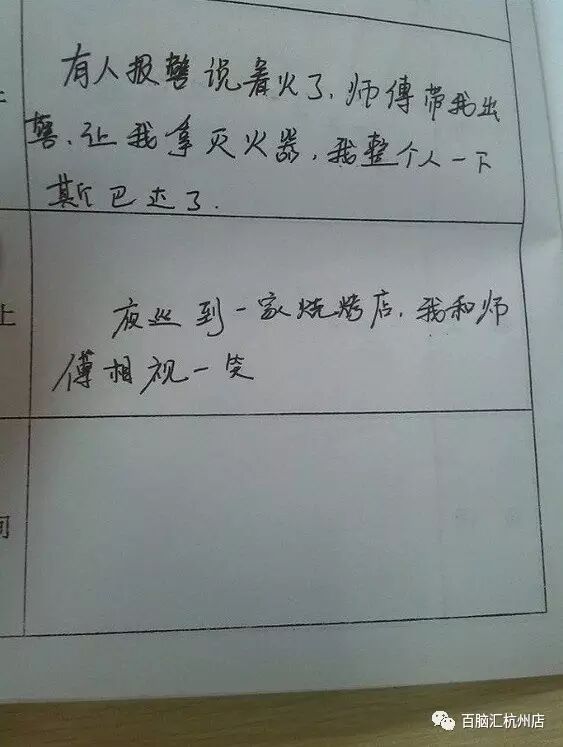 有人报警说着火了，师傅带我出
警，让我拿灭火器，我整个人一下
斯巴达了．
上
夜巡到一家烧烤店，我和师
傅相视一笑
间
百脑汇杭州店